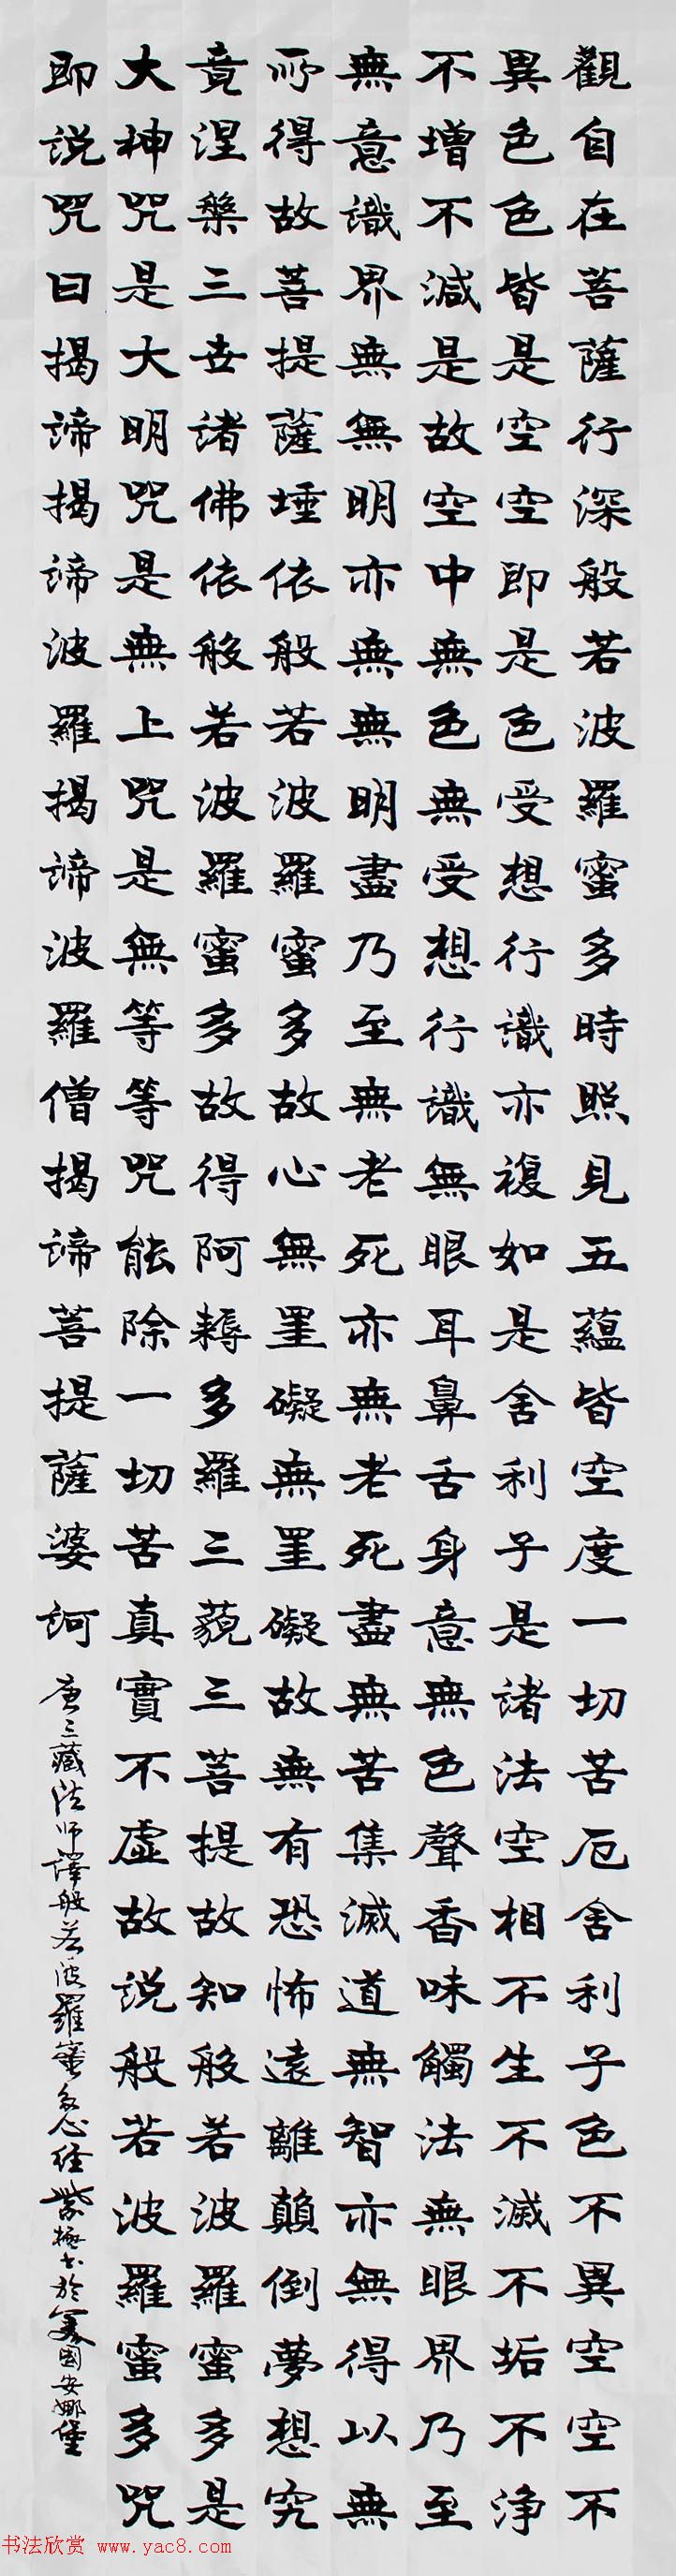 觀自在菩薩行深般若波羅蜜多時照見五蘊皆空度一切苦厄舍利子色不異空空不
異色色皆是空空即是色受想行識亦複如是舍利子是諸法空相不生不滅不垢不淨
不增不減是故空中無色無受想行識無眼耳鼻舌身意無色聲香味觸法無眼界乃至
無意識界無無明亦無無明盡乃至無老死亦無老死盡無苦集滅道無智亦無得以無
所得故菩提薩埵依般若波羅蜜多故心無罣礙無罣礙故無有恐怖遠離顛倒夢想究
竟涅槃三世諸佛依般若波羅蜜多故得阿耨多羅三藐三菩提故知般若波羅蜜多是
大神咒是大明咒是無上咒是無等等咒能除一切苦真實不虛故說般若波羅蜜多咒
即說咒曰揭諦揭諦波羅揭諦波羅僧揭諦菩提薩婆訶 唐三藏法師譯般若波羅蜜多心經紫極書於美國安娜堡
书法欣赏 www.yac8.com